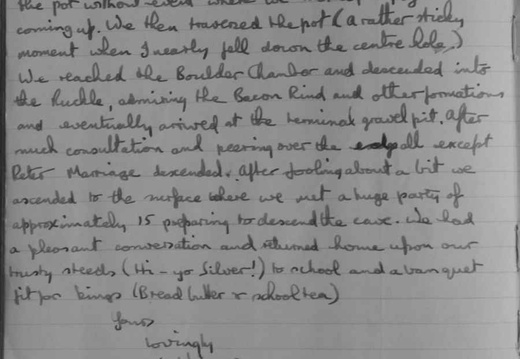 the pot without
coming up. We then traversed the pot (a rather sticky
moment when I nearly fell down the centre hole.)
We reached the Boulder Chamber and descended into
the Ruckle, admiring the Bacon Rind and other formations
and eventually arrived at the terminal gravel pit. After
much consultation and peering over the all except
Peter Marriage descended. After fooling about a bit we
ascended to the surface where we met a huge party of
approximately 15 preparing to descend the cave. We had
a pleasant conversation and returned home upon our
trusty steeds (Hi-yo Silver!) to school and a banquet
fit for kings (Bread butter & school tea)
Yours
lovingly